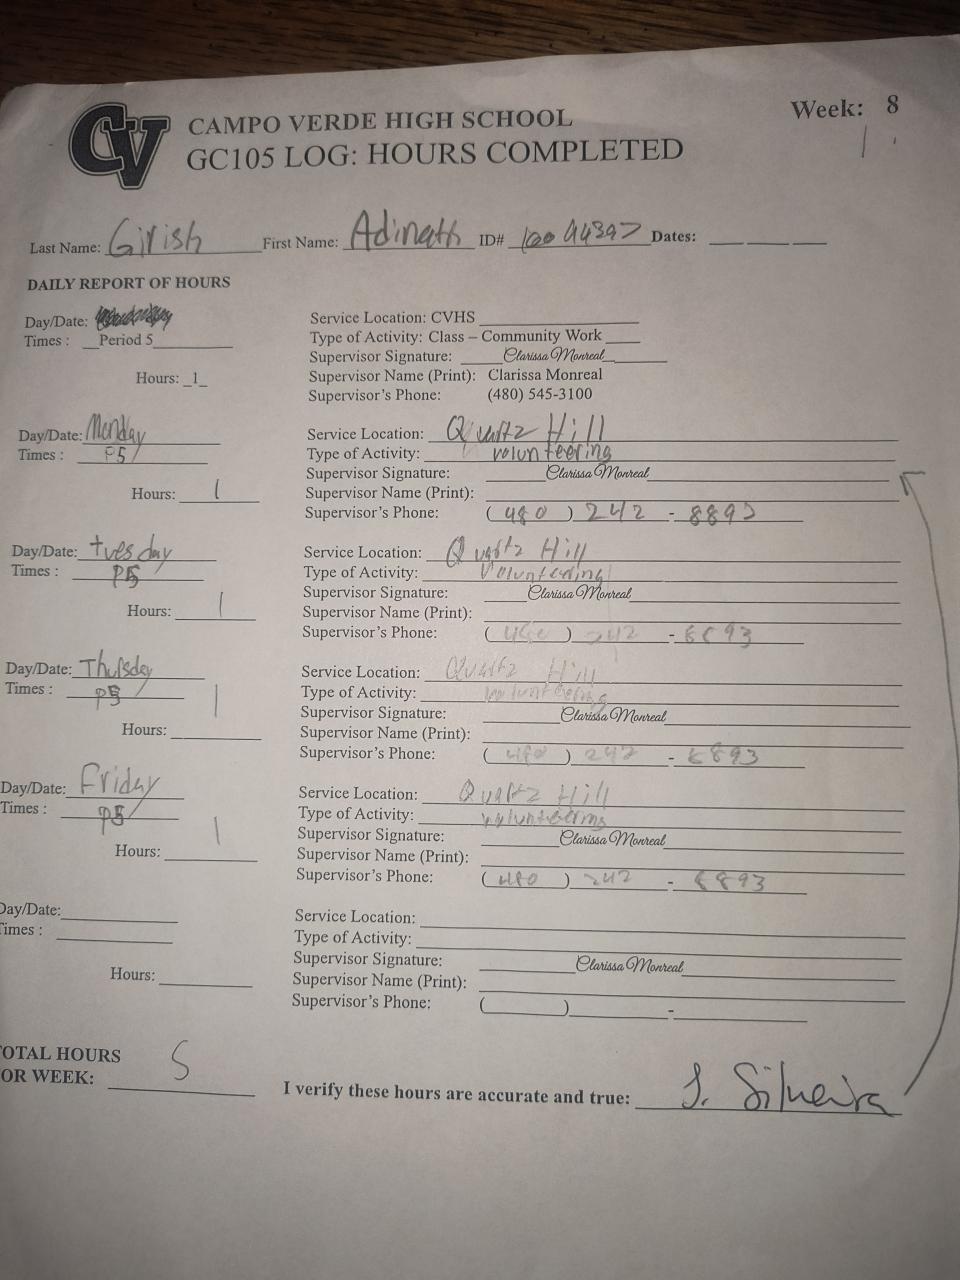 CV
CAMPO VERDE HIGH SCHOOL
Week: 8
GC105 LOG: HOURS COMPLETED
Last Name: Girish First Name: Adinath ID# Dates:
DAILY REPORT OF HOURS
Day/Date:
Times : Period 5
Hours: 1
Service Location: CVHS
Type of Activity: Class – Community Work
Supervisor Signature: Clarissa Monreal
Supervisor Name (Print): Clarissa Monreal
Supervisor's Phone: (480) 545-3100
Day/Date: Monday
Times : P5
Hours: 1
Service Location: Quartz Hill
Type of Activity: volunteering
Supervisor Signature: Clarissa Monreal
Supervisor Name (Print):
Supervisor's Phone: (480) 242 - 8893
Day/Date: tuesday
Times : P5
Hours: 1
Service Location: Quartz Hill
Type of Activity: Volunteering
Supervisor Signature: Clarissa Monreal
Supervisor Name (Print):
Supervisor's Phone: (480) 242 -
Day/Date: Thursday
Times : P5
Hours: 1
Service Location: Quartz Hill
Type of Activity: volunteering
Supervisor Signature: Clarissa Monreal
Supervisor Name (Print):
Supervisor's Phone: (480) 242 -
Day/Date: Friday
Times : P5
Hours: 1
Service Location: Quartz Hill
Type of Activity: volunteering
Supervisor Signature: Clarissa Monreal
Supervisor Name (Print):
Supervisor's Phone: (480) 242 -
Day/Date:
Times :
Hours:
Service Location:
Type of Activity:
Supervisor Signature: Clarissa Monreal
Supervisor Name (Print):
Supervisor's Phone: ( ) -
OTAL HOURS
OR WEEK: 5
I verify these hours are accurate and true: J. Silveira